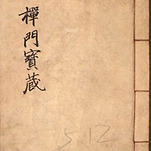 禪門寶藏
512